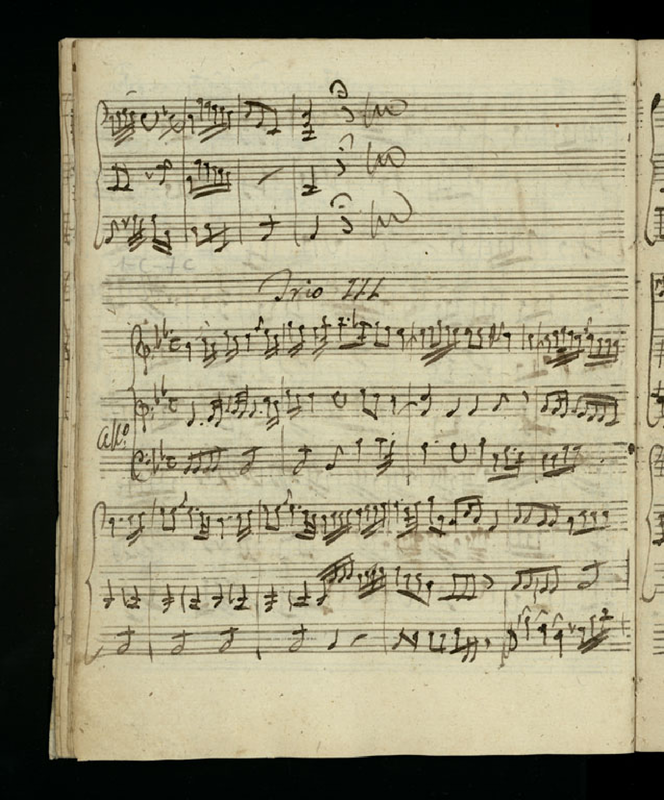 Trio III
all:º